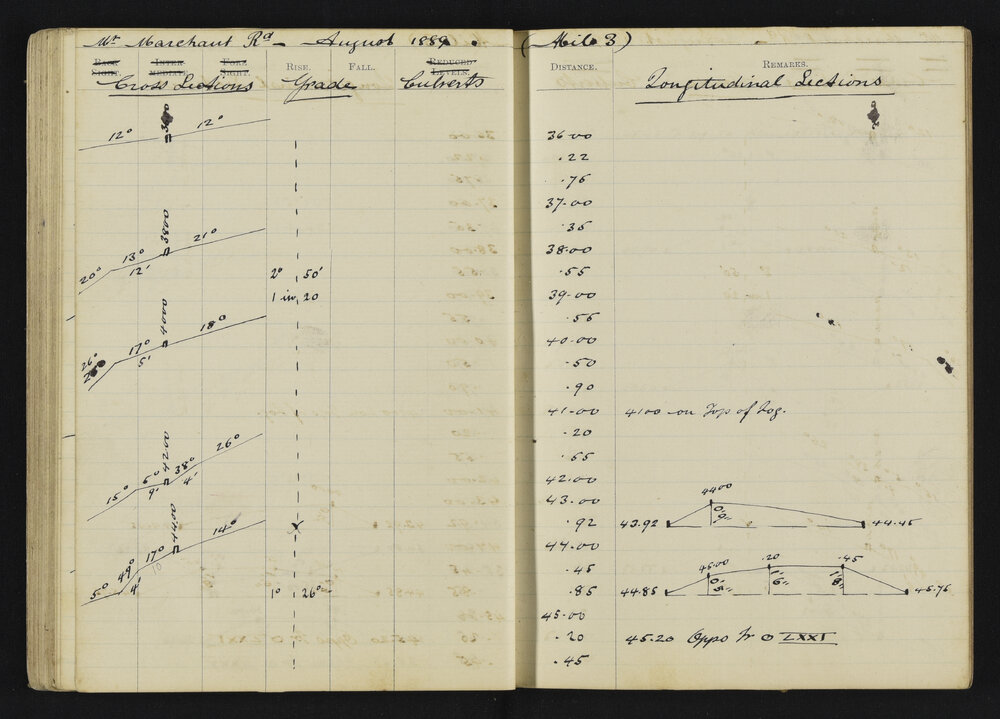 Mr Marchant Rd - August 1889. (Mile 3)
BACK SIGHT. INTERMEDIATE. FORE SIGHT. RISE. FALL. REDUCED LEVELS. DISTANCE. REMARKS.
Cross Sections Grade Culverts Longitudinal Sections
12° 12°
3800
20° 13° 21°
12'
2° 50'
1 in 20
4000
26° 17° 18°
5'
4200
15° 6° 38° 26°
9' 4'
4400
5° 49° 17° 14°
4' 10
1° 26°
36.00
.22
.76
37.00
.35
38.00
.55
39.00
.56
40.00
.50
.90
41.00 4100 on Top of Log.
.20
.65
42.00
43.00
.92
44.00
.45
.85
45.00
.20 45.20 Oppo Tr O LXXI
.45
44.00
43.92 0.9" 44.45
45.00 .20 .45
44.85 45.75